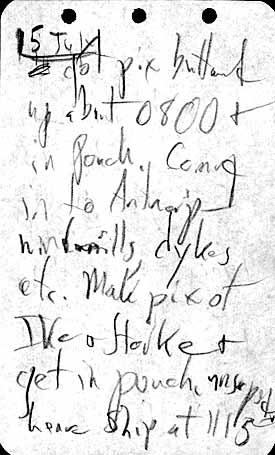 15 July
Got pix button
up about 0800 +
in pouch. Coming
in to Antwerp
windmills, dykes
etc. Make pix of
Ike +
get in pouch,
leave ship at 1115